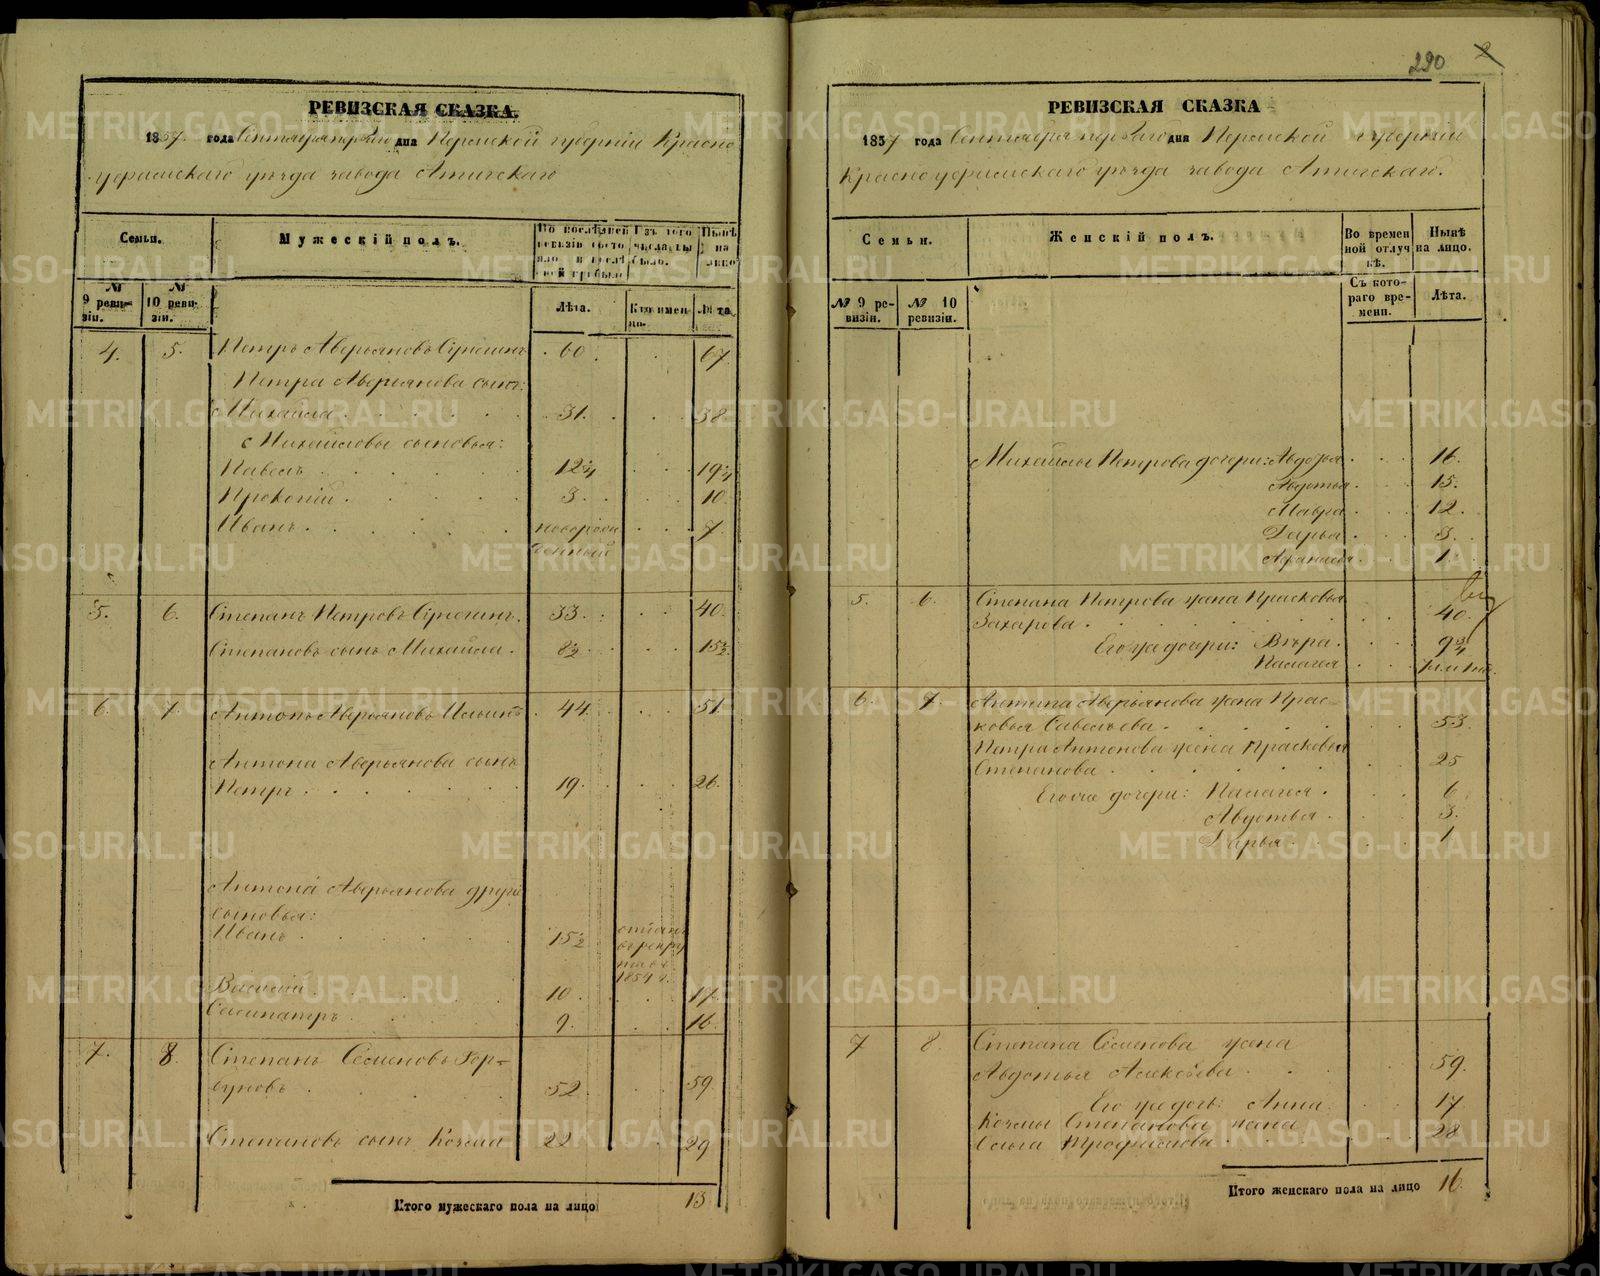 РЕВИЗСКАЯ СКАЗКА.
1857. года Сентября перваго дня Пермской губерніи Красно
уфимскаго уѣзда завода Атигскаго
Семьи.
Мужескій полъ.
По послѣдней ревизіи состояло и послѣ оной прибыло
Изъ того числа выбыло.
Нынѣ на лицо
№ 9 ревизіи.
№ 10 ревизіи.
Лѣта.
Кто именно.
Лѣта
4. 5. Петръ Аверьяновъ 60. 67
Петра Аверьянова сынъ:
Михайла 31. 38.
Михайловы сыновья:
Павелъ 12¾ 19¾
Прокопій 3. 10.
Иванъ новорожденный 7
5. 6. Степанъ Петровъ 33. 40.
Степановъ сынъ Михайла. 8½ 15½
6. 7. Антонъ Аверьяновъ 44 51.
Антона Аверьянова сынъ
Петръ 19. 26.
Антона Аверьянова другіе
сыновья:
Иванъ 15½ отданъ въ рекруты въ 1854 г.
Василий 10 17.
Селипатръ 9. 16.
7. 8. Степанъ Семеновъ Гор=
буновъ 52 59.
Степановъ сынъ Козьма 22 29
Итого мужескаго пола на лицо 13
290 2
РЕВИЗСКАЯ СКАЗКА
1857 года Сентября перваго дня Пермской губерніи
Красноуфимскаго уѣзда завода Атигскаго.
Семьи.
Женскій полъ.
Во временной отлучкѣ.
Нынѣ на лицо.
№ 9 ревизіи.
№ 10 ревизіи.
Съ котораго времени.
Лѣта.
Михайлы Петрова дочери: Авдотья 16.
Авдотья 15.
Мавра 12.
Дарья 3.
Афанасья 1.
5. 6. Степана Петрова жена Прасковья
Захарова 40.
Его же дочери: Вѣра. 9¾
Палагея
6. 7. Антона Аверьянова жена Прас-
ковья Савельева 53.
Петра Антонова жена Прасковья
Степанова 25
Его же дочери: Палагея. 6
Авдотья 3.
Дарья 1
7 8. Степана Семенова жена
Авдотья Алексѣева 59.
Его же дочь: Анна 17
Козьмы Степанова жена
Ольга Трофимова 28
Итого женскаго пола на лицо 16.
METRIKI.GASO-URAL.RU